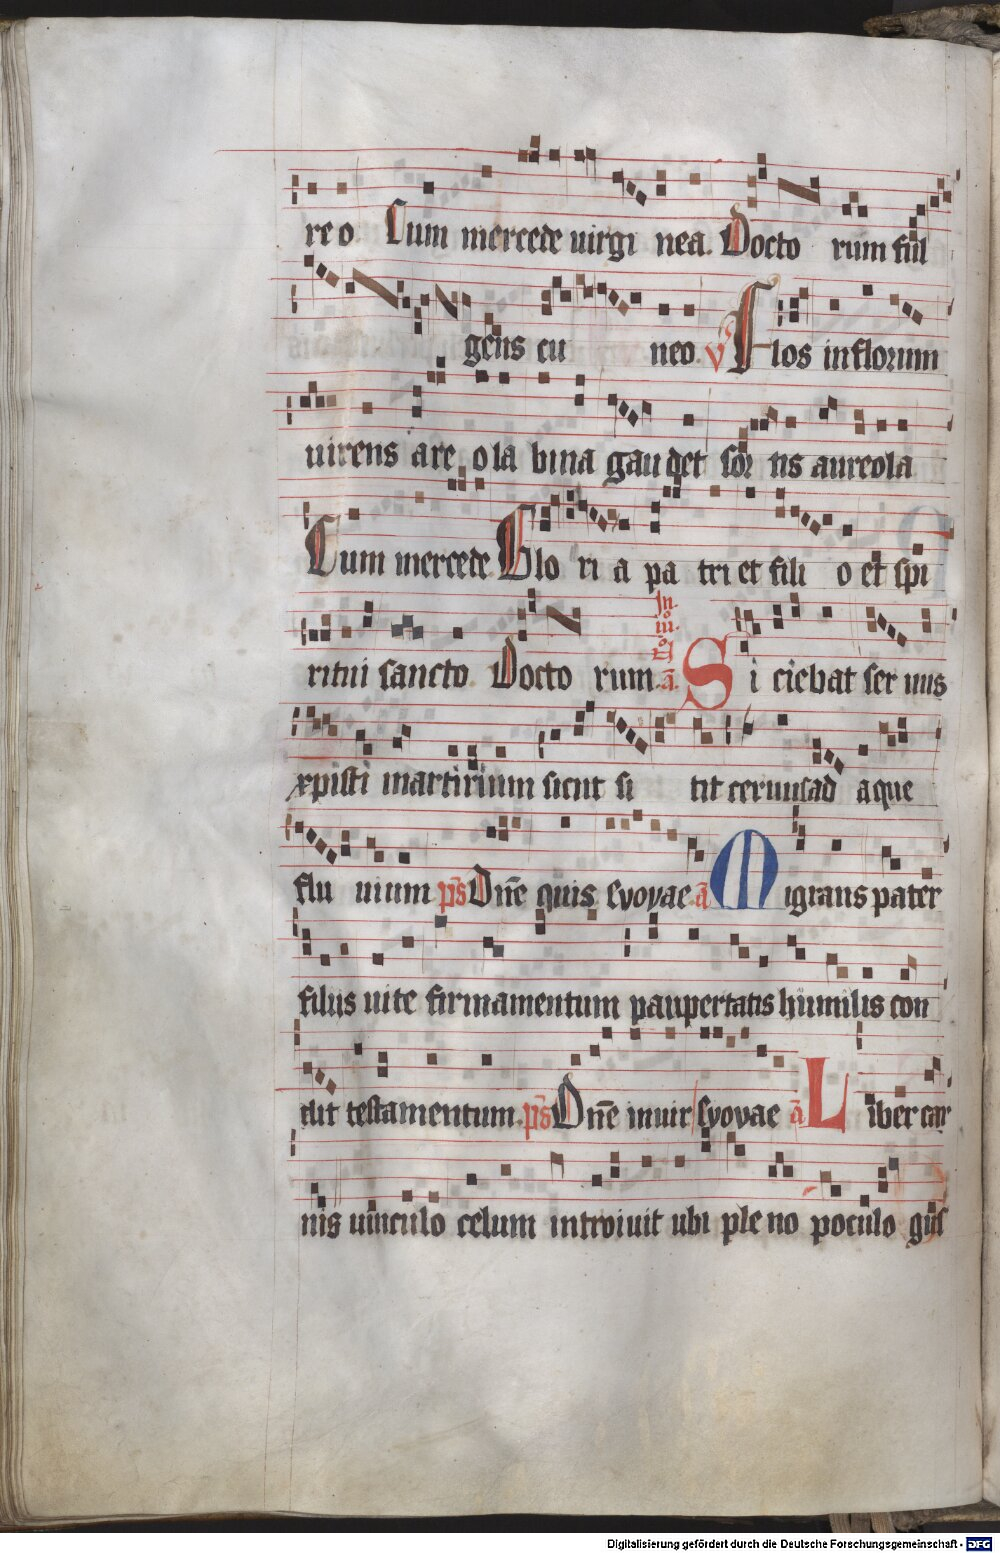 re o Cum mercede uirgi nea. Docto rum ful
gens cu neo v Flos in florum
uirens are ola bina gaudet sor tis aureola
Cum mercede Glo ri a pa tri et fili o et spi
ritui sancto Docto rum. In iii. no ct a Si ciebat ser uus
xpisti martirium sicut si tit ceruus ad aque
flu uium ps Dne quis Evovae a Migrans pater
filiis uite firmamentum paupertatis humilis con
dit testamentum. ps Dne in uir Evovae a Liber car
nis uinculo celum introiuit ubi pleno poculo gus
Digitalisierung gefördert durch die Deutsche Forschungsgemeinschaft - DFG